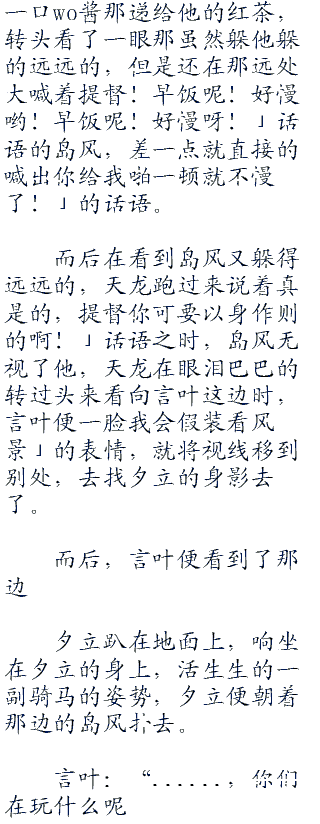 一口wo酱那递给他的红茶，
转头看了一眼那虽然躲他躲
的远远的，但是还在那远处
大喊着提督！早饭呢！好慢
哟！早饭呢！好慢呀！」话
语的岛风，差一点就直接的
喊出你给我啪一顿就不慢
了！」的话语。
而后在看到岛风又躲得
远远的，天龙跑过来说着真
是的，提督你可要以身作则
的啊！」话语之时，岛风无
视了他，天龙在眼泪巴巴的
转过头来看向言叶这边时，
言叶便一脸我会假装看风
景」的表情，就将视线移到
别处，去找夕立的身影去
了。
而后，言叶便看到了那
边
夕立趴在地面上，响坐
在夕立的身上，活生生的一
副骑马的姿势，夕立便朝着
那边的岛风扑去。
言叶：“......，你们
在玩什么呢